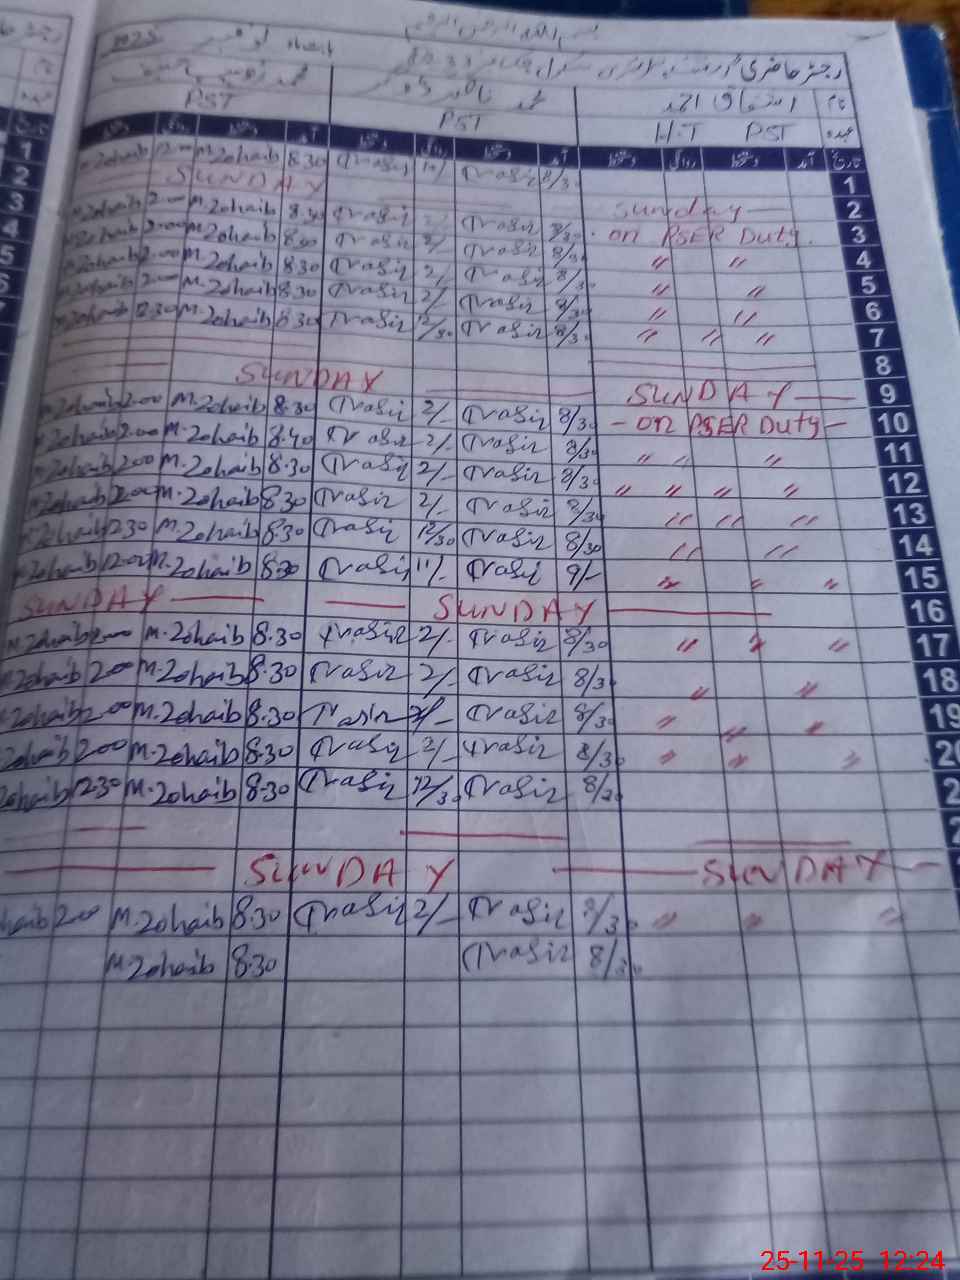 بسم اللہ الرحمن الرحیم
رجسٹر حاضری گورنمنٹ پرائمری سکول بابت ماہ نومبر 2025
نام اشتیاق احمد محمد ناصر محمد زوہیب
عہدہ H.T PST PST PST
تاریخ آمد دستخط روانگی دستخط آمد دستخط روانگی دستخط آمد دستخط روانگی دستخط
1 8/30 Nasir 12/ Nasir 8.30 M.Zohaib 12.00 M.Zohaib
2 Sunday SUNDAY
3 on PSER Duty. 8/30 Nasir Nasir 8.30 M.Zohaib 2.00 M.Zohaib
4 〃 〃 8/30 Nasir 2/ Nasir 8.30 M.Zohaib 2.00 M.Zohaib
5 〃 〃 8/30 Nasir 2/ Nasir 8.30 M.Zohaib 2.00 M.Zohaib
6 〃 〃 8/30 Nasir 2/ Nasir 8.30 M.Zohaib 2.00 M.Zohaib
7 〃 〃 〃 8/30 Nasir 12/30 Nasir 8.30 M.Zohaib 12.30 M.Zohaib
8
9 SUNDAY SUNDAY
10 - on PSER Duty - 8/30 Nasir 2/- Nasir 8.30 M.Zohaib 2.00 M.Zohaib
11 〃 〃 〃 8/30 Nasir 2/- Nasir 8.40 M.Zohaib 2.00 M.Zohaib
12 〃 〃 〃 〃 8/30 Nasir 2/- Nasir 8.30 M.Zohaib 2.00 M.Zohaib
13 〃 〃 〃 8/30 Nasir 2/- Nasir 8.30 M.Zohaib 2.00 M.Zohaib
14 〃 〃 8/30 Nasir 12/30 Nasir 8.30 M.Zohaib 12.30 M.Zohaib
15 〃 〃 〃 9/- Nasir 11/- Nasir 8.30 M.Zohaib 12.00 M.Zohaib
16 SUNDAY SUNDAY
17 〃 〃 〃 8/30 Nasir 2/- Nasir 8.30 M.Zohaib 2.00 M.Zohaib
18 〃 〃 8/30 Nasir 2/- Nasir 8.30 M.Zohaib 2.00 Zohaib
19 〃 〃 〃 8/30 Nasir 2/- Nasir 8.30 M.Zohaib 2.00 Zohaib
20 〃 〃 〃 8/30 Nasir 2/- Nasir 8.30 M.Zohaib 2.00 Zohaib
2 8/20 Nasir 12/30 Nasir 8.30 M.Zohaib 12.30 Zohaib
2
SUNDAY SUNDAY
〃 〃 〃 8/30 Nasir 2/- Nasir 8.30 M.Zohaib 2.00 haib
8/30 Nasir 8.30 M.Zohaib
25-11-25 12:24